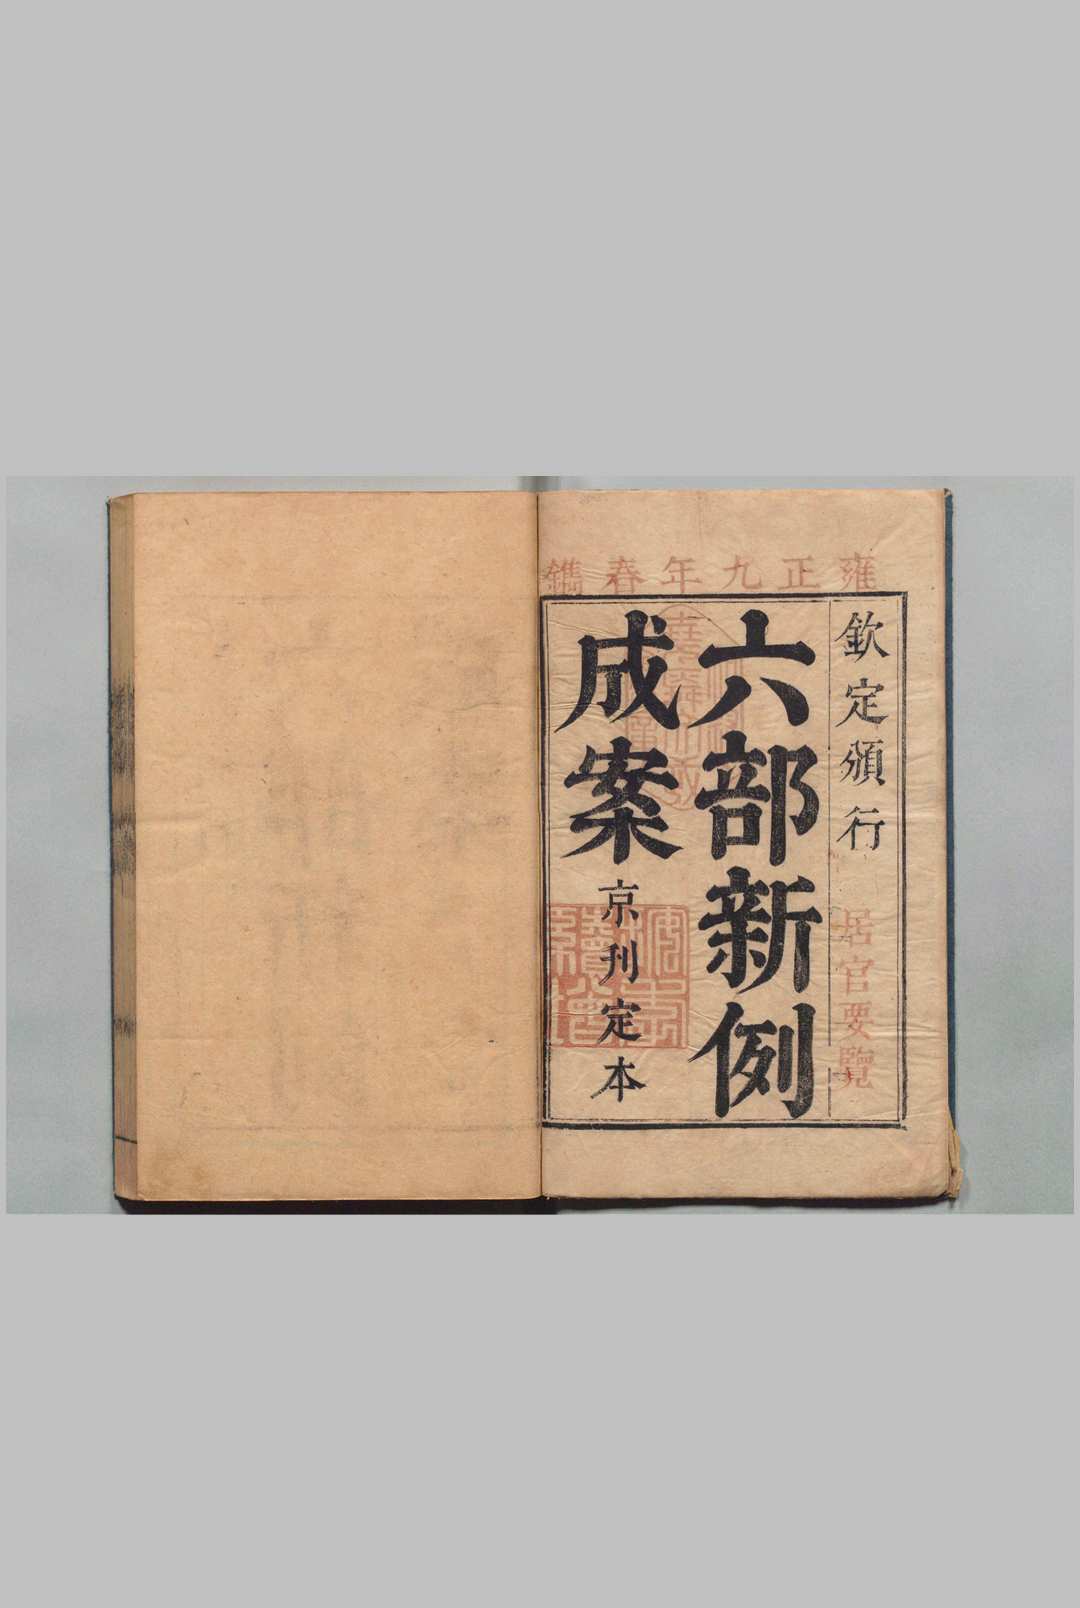 雍正九年春鐫
欽定頒行
居官要覽
六部新例
成案
京刊定本